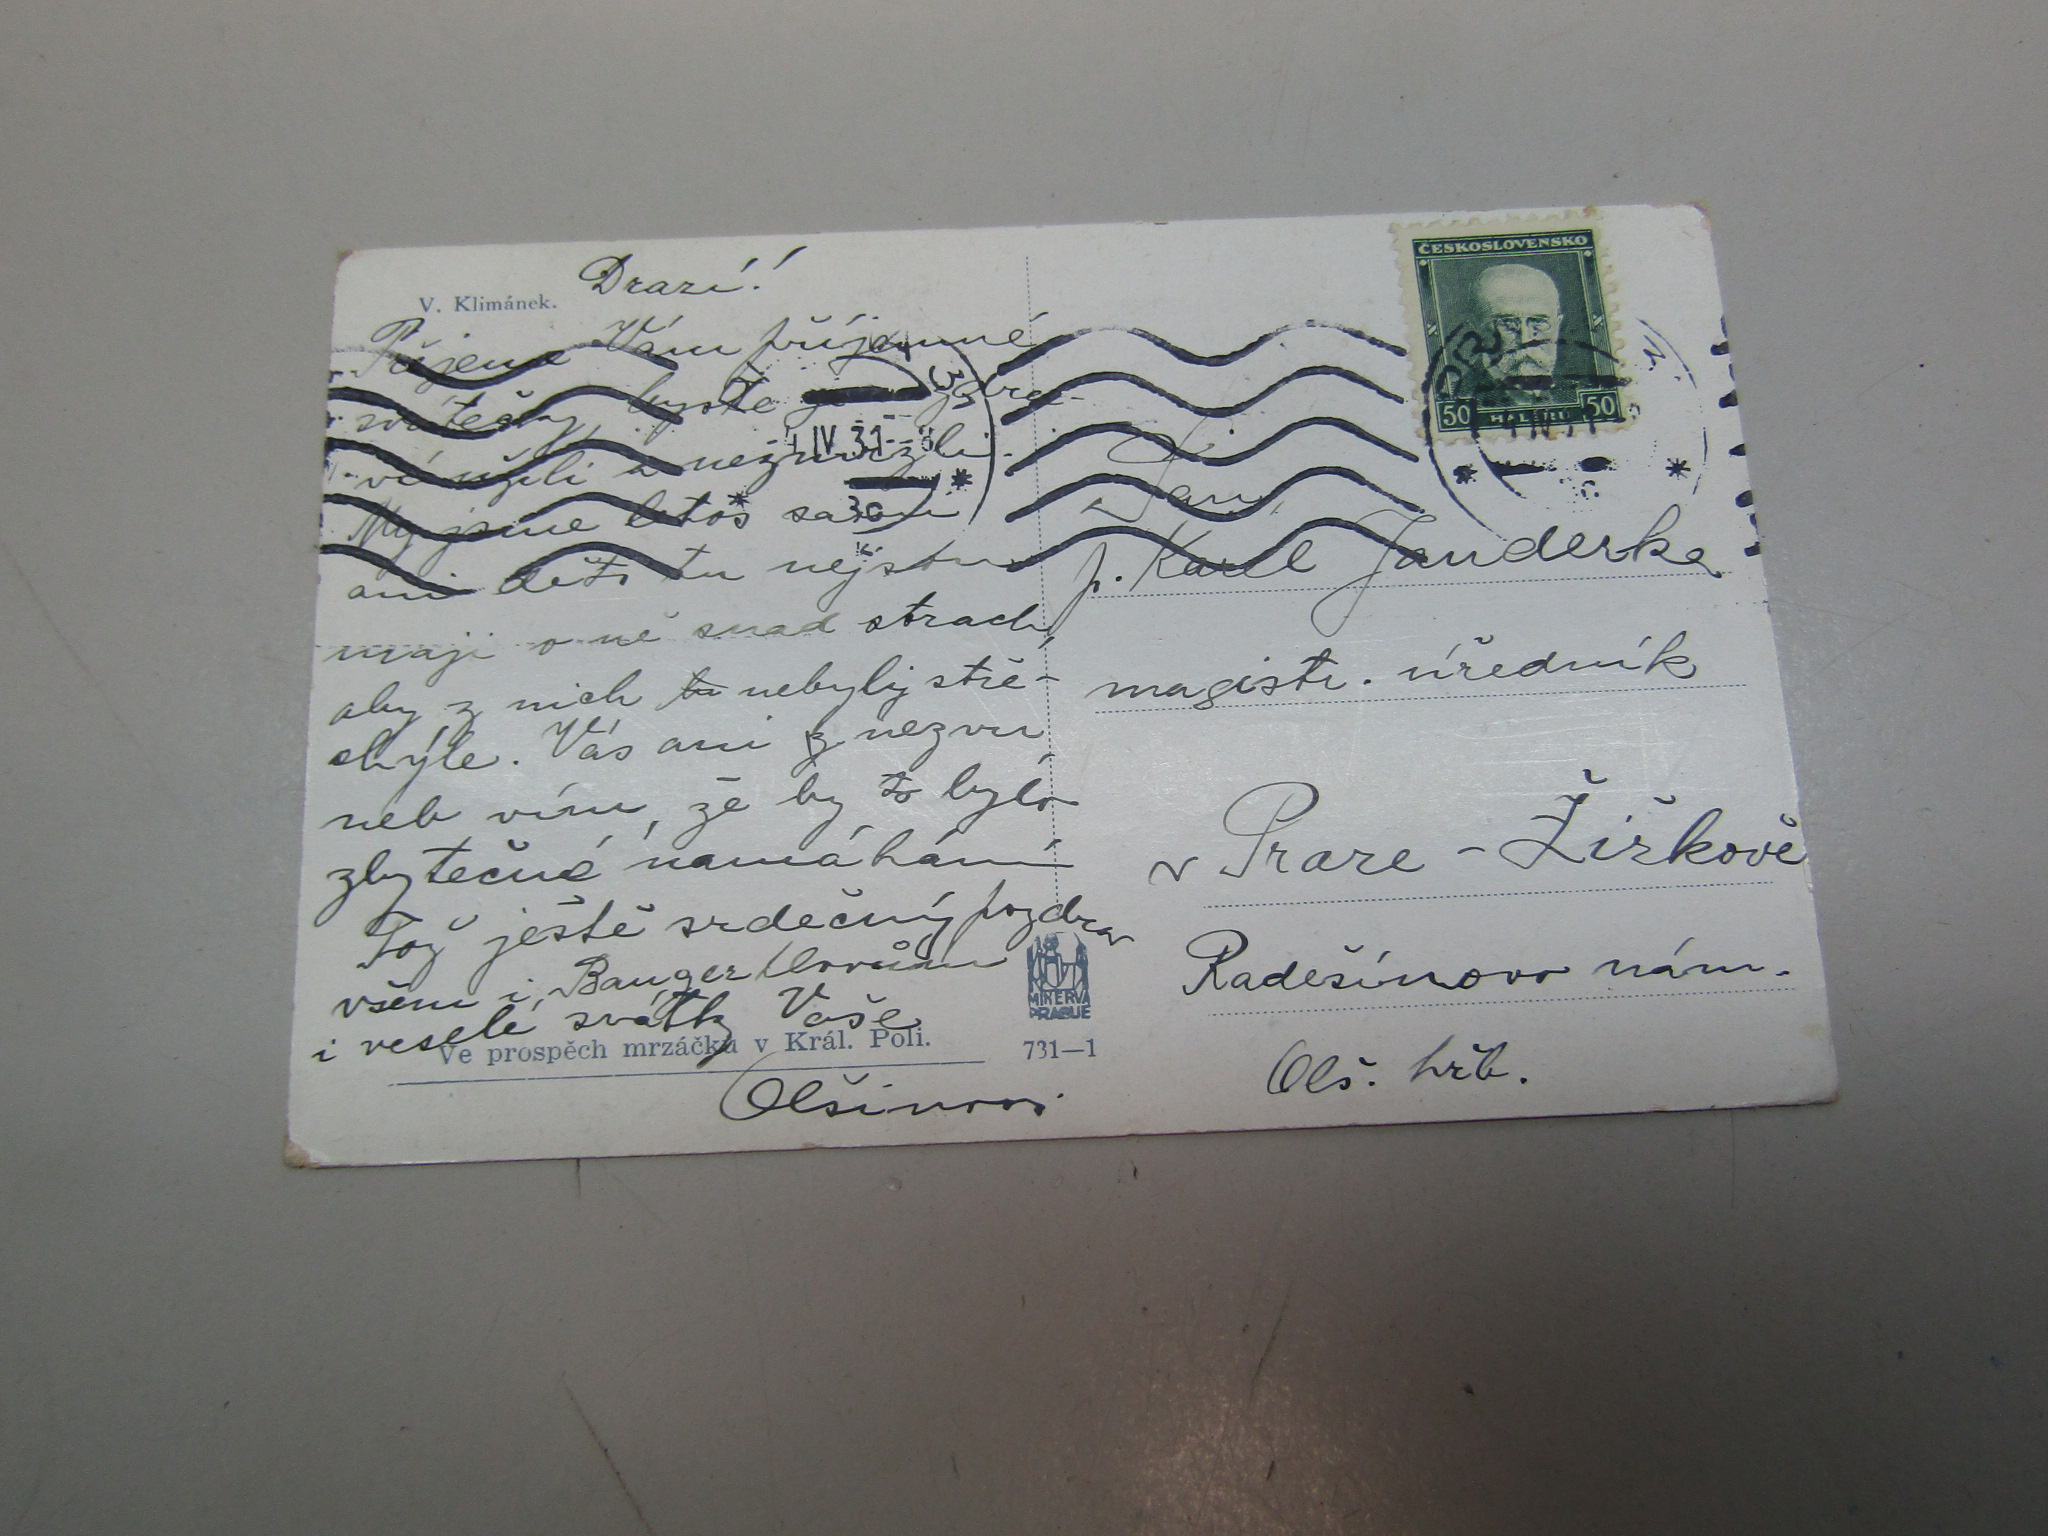 V. Klimánek.
Drazí!
Přejeme Vám příjemné
svátečky, byste je zdra-
ví užili a nezmrzli.
My jsme letos sami
ani děti tu nejsou
mají o ně snad strach,
aby z nich tu nebyly stře-
chýle. Vás ani z nezvu
neb vím, že by to bylo
zbytečné namáhání
Tož ještě srdečný pozdrav
všem i
i veselé svátky Vaše
Olšinovi.
Ve prospěch mrzáčků v Král. Poli.
MINERVA
PRAGUE
731—1
ČESKOSLOVENSKO
50 HALÉŘŮ 50
IV. 31
p. Karel Janderka
magistr. úředník
v Praze - Žižkově
Radešínovo nám.
Olš. hřb.